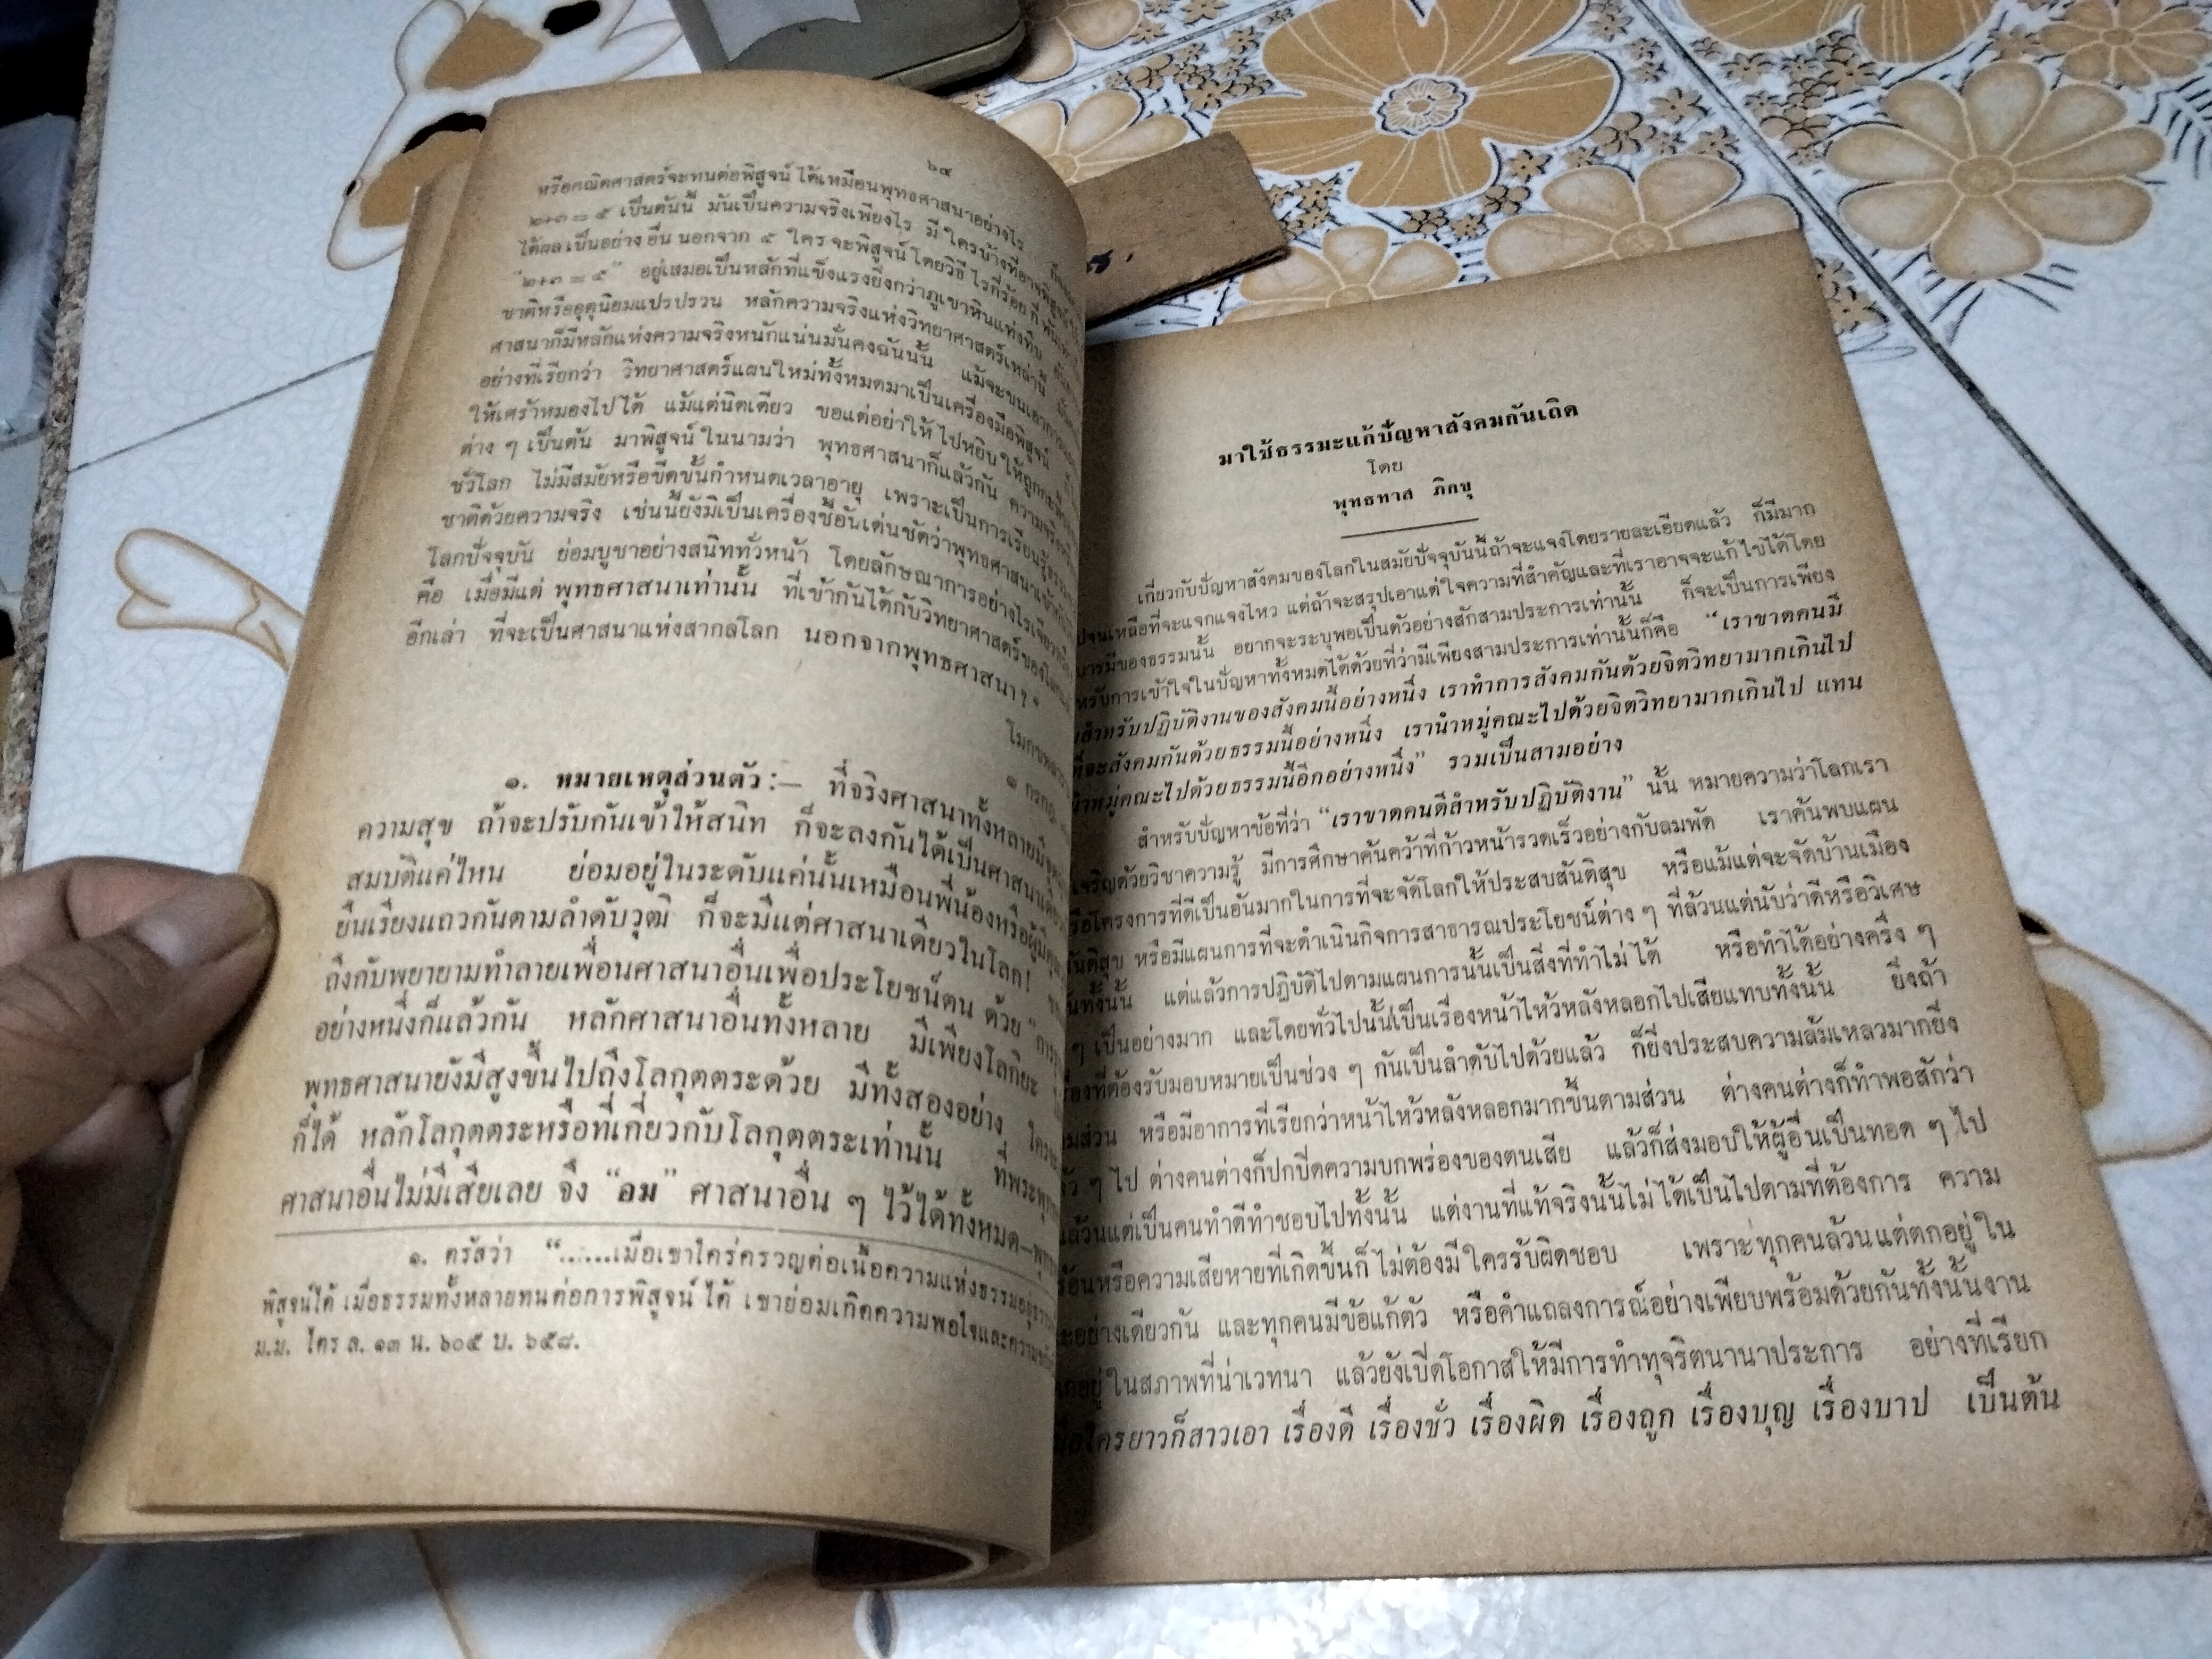 ๖๔
หรือคณิตศาสตร์จะทนต่อพิสูจน์ ได้เหมือนพุทธศาสนาอย่างไร
๒+๓ = ๕ เป็นต้นนี้ มันเป็นความจริงเพียงไร มี ใครบ้างที่อาจพิสูจน์
ได้ผล เป็นอย่าง อื่น นอกจาก ๕ ใคร จะพิสูจน์ โดยวิธี ไรกี่ร้อย กี่ พัน
"๒+๓ = ๕" อยู่เสมอเป็นหลักที่แข็งแรงยิ่งกว่าภูเขาหินแท่งทึบ
ชาติหรืออุตุนิยมแปรปรวน หลักความจริงแห่งวิทยาศาสตร์เหล่านี้
ศาสนาก็มีหลักแห่งความจริงหนักแน่นมั่นคงฉันนั้น แม้จะขนเอา
อย่างที่เรียกว่า วิทยาศาสตร์แผนใหม่ทั้งหมดมาเป็นเครื่องมือพิสูจน์
ให้เศร้าหมองไปได้ แม้แต่นิดเดียว ขอแต่อย่าให้ ไปหยิบ ให้ถูก
ต่าง ๆ เป็นต้น มาพิสูจน์ ในนามว่า พุทธศาสนาก็แล้วกัน ความจริง
ชั่วโลก ไม่มีสมัยหรือขีดขั้นกำหนดเวลาอายุ เพราะเป็นการเรียนรู้
ชาติด้วยความจริง เช่นนี้ยังมิเป็นเครื่องชี้อันเด่นชัดว่าพุทธศาสนา
โลกปัจจุบัน ย่อมบูชาอย่างสนิททั่วหน้า โดยลักษณาการอย่างไรเจียวหรือ
คือ เมื่อมีแต่ พุทธศาสนาเท่านั้น ที่เข้ากันได้กับวิทยาศาสตร์ของโลก
อีกเล่า ที่จะเป็นศาสนาแห่งสากลโลก นอกจากพุทธศาสนา?"
๑ กรกฎ
๑. หมายเหตุส่วนตัว :— ที่จริงศาสนาทั้งหลายมี
ความสุข ถ้าจะปรับกันเข้าให้สนิท ก็จะลงกันได้เป็นศาสนา
สมบัติแค่ไหน ย่อมอยู่ในระดับแค่นั้นเหมือนพี่น้องหรือผู้
ยืนเรียงแถวกันตามลำดับวุฒิ ก็จะมีแต่ศาสนาเดียวในโลก!
ถึงกับพยายามทำลายเพื่อนศาสนาอื่นเพื่อประโยชน์ตน ด้วย
อย่างหนึ่งก็แล้วกัน หลักศาสนาอื่นทั้งหลาย มีเพียงโลกิยะ
พุทธศาสนายังมีสูงขึ้นไปถึงโลกุตตระด้วย มีทั้งสองอย่าง
ก็ได้ หลักโลกุตตระหรือที่เกี่ยวกับโลกุตตระเท่านั้น
ศาสนาอื่นไม่มีเสียเลย จึง "อม" ศาสนาอื่น ๆ ไว้ได้ทั้งหมด—
๑. ตรัสว่า "......เมื่อเขาใคร่ครวญต่อเนื้อความแห่งธรรม
พิสูจน์ได้ เมื่อธรรมทั้งหลายทนต่อการพิสูจน์ ได้ เขาย่อมเกิดความพอใจและ
ม.ม. ไตร ล. ๑๓ น. ๖๐๕ บ. ๖๕๘.
มาใช้ธรรมะแก้ปัญหาสังคมกันเถิด
โดย
พุทธทาส ภิกขุ
เกี่ยวกับปัญหาสังคมของโลกในสมัยปัจจุบันนี้ถ้าจะแจงโดยรายละเอียดแล้ว ก็มีมาก
เหลือที่จะแจกแจงไหว แต่ถ้าจะสรุปเอาแต่ ใจความที่สำคัญและที่เราอาจจะแก้ ไขได้โดย
บารมีของธรรมนั้น อยากจะระบุพอเป็นตัวอย่างสักสามประการเท่านั้น ก็จะเป็นการเพียง
การเข้าใจในปัญหาทั้งหมดได้ด้วยที่ว่ามีเพียงสามประการเท่านั้นก็คือ "เราขาดคนมี
สำหรับปฏิบัติงานของสังคมนี้อย่างหนึ่ง เราทำการสังคมกันด้วยจิตวิทยามากเกินไป
ที่จะสังคมกันด้วยธรรมนี้อย่างหนึ่ง เรานำหมู่คณะไปด้วยจิตวิทยามากเกินไป แทน
นำหมู่คณะไปด้วยธรรมนี้อีกอย่างหนึ่ง" รวมเป็นสามอย่าง
สำหรับปัญหาข้อที่ว่า "เราขาดคนดีสำหรับปฏิบัติงาน" นั้น หมายความว่าโลกเรา
เจริญด้วยวิชาความรู้ มีการศึกษาค้นคว้าที่ก้าวหน้ารวดเร็วอย่างกับลมพัด เราค้นพบแผน
โครงการที่ดีเป็นอันมากในการที่จะจัดโลกให้ประสบสันติสุข หรือแม้แต่จะจัดบ้านเมือง
หรือมีแผนการที่จะดำเนินกิจการสาธารณประโยชน์ต่าง ๆ ที่ล้วนแต่นับว่าดีหรือวิเศษ
แต่แล้วการปฏิบัติไปตามแผนการนั้นเป็นสิ่งที่ทำไม่ ได้ หรือทำได้อย่างครึ่ง ๆ
ๆ เป็นอย่างมาก และโดยทั่วไปนั้นเป็นเรื่องหน้าไหว้หลังหลอกไปเสียแทบทั้งนั้น ยิ่งถ้า
ที่ต้องรับมอบหมายเป็นช่วง ๆ กันเป็นลำดับไปด้วยแล้ว ก็ยิ่งประสบความล้มเหลวมากยิ่ง
หรือมีอาการที่เรียกว่าหน้าไหว้หลังหลอกมากขึ้นตามส่วน ต่างคนต่างก็ทำพอสักว่า
ๆ ไป ต่างคนต่างก็ปกปิดความบกพร่องของตนเสีย แล้วก็ส่งมอบให้ผู้อื่นเป็นทอด ๆ ไป
ล้วนแต่เป็นคนทำดีทำชอบไปทั้งนั้น แต่งานที่แท้จริงนั้นไม่ ได้เป็นไปตามที่ต้องการ ความ
หรือความเสียหายที่เกิดขึ้นก็ ไม่ต้องมี ใครรับผิดชอบ เพราะทุกคนล้วนแต่ตกอยู่ ใน
อย่างเดียวกัน และทุกคนมีข้อแก้ตัว หรือคำแถลงการณ์อย่างเพียบพร้อมด้วยกันทั้งนั้นงาน
ในสภาพที่น่าเวทนา แล้วยังเปิดโอกาสให้มีการทำทุจริตนานาประการ อย่างที่เรียก
ใครยาวก็สาวเอา เรื่องดี เรื่องชั่ว เรื่องผิด เรื่องถูก เรื่องบุญ เรื่องบาป เป็นต้น